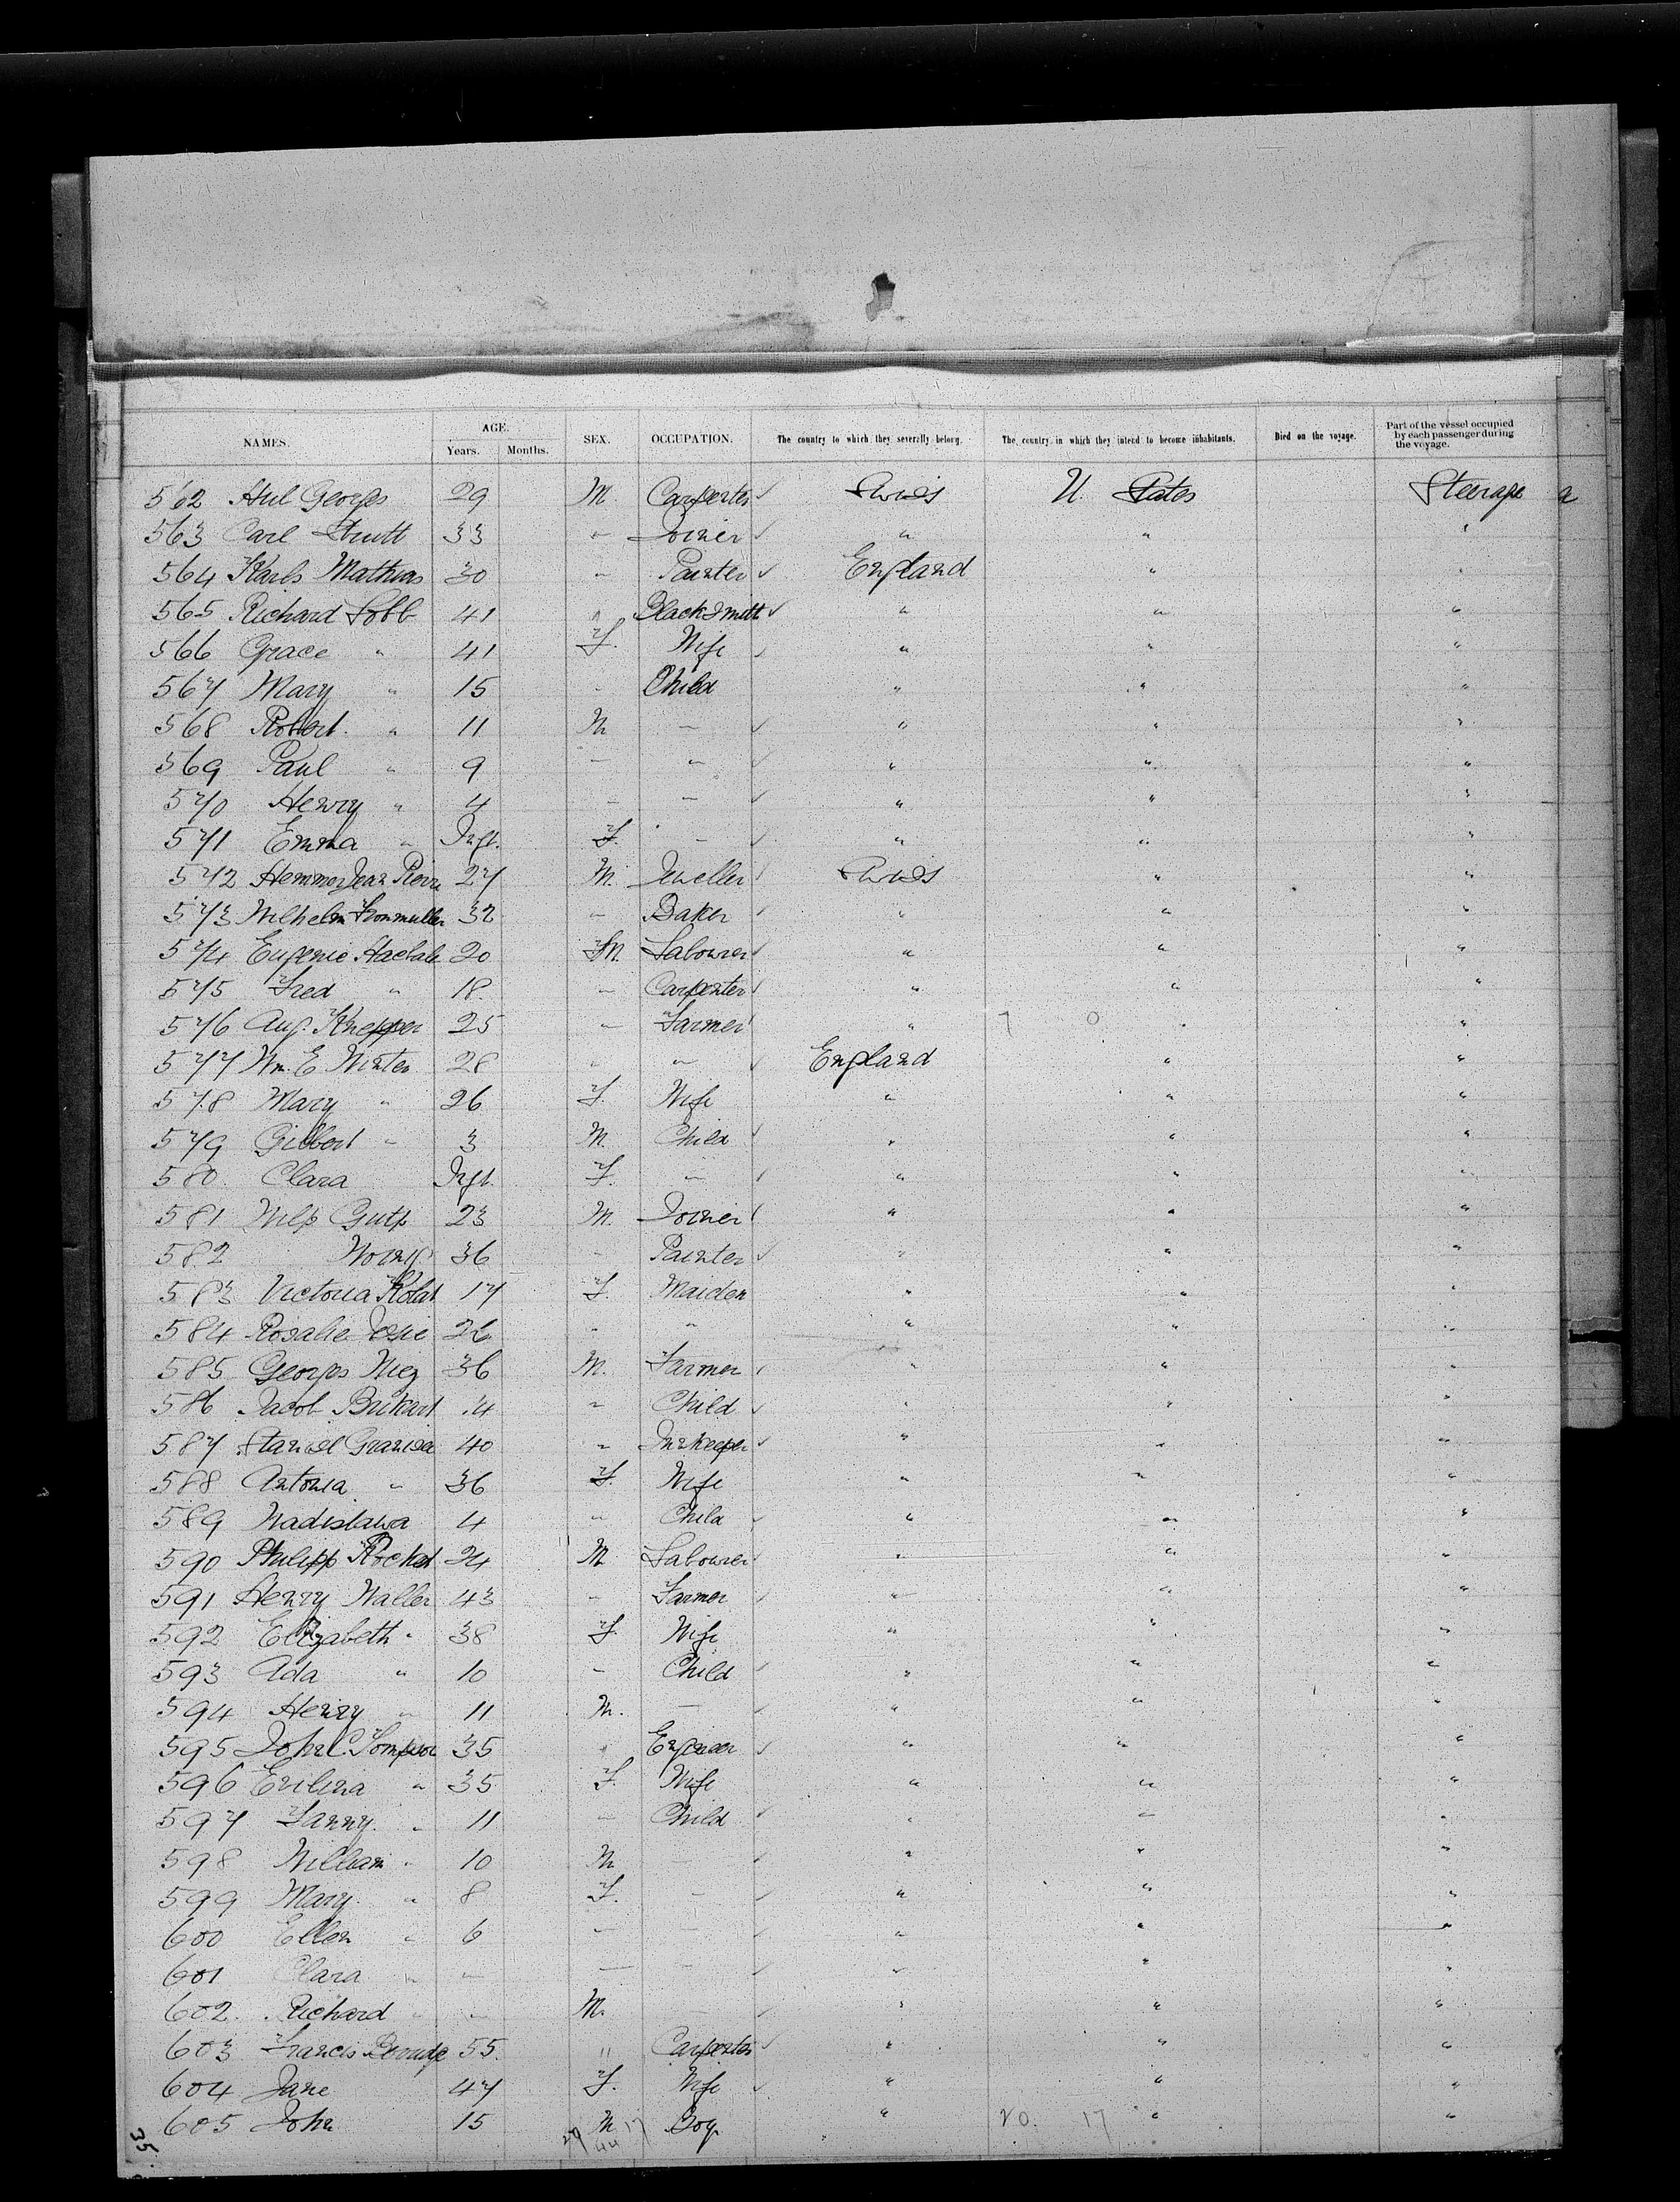 NAMES. AGE. Years. Months. SEX. OCCUPATION. The country to which they severally belong. The country in which they intend to become inhabitants. Died on the voyage. Part of the vessel occupied by each passenger during the voyage.
562 Georges 29 M Carpenter Swiss U. States Steerage
563 Carl 33 " Joiner " " "
564 Mathias 30 " Painter England " "
565 Richard Lobb 41 " Blacksmith " " "
566 Grace " 41 F. Wife " " "
567 Mary " 15 " Child " " "
568 Robert " 11 M " " " "
569 Paul " 9 " " " " "
570 Henry " 4 " " " " "
571 Emma " Inft. F. " " " "
572 Hemmer Jean Pierre 27 M. Jeweller Swiss " "
573 Wilhelm Kronmuller 32 " Baker " " "
574 Eugenie 20 M. Labourer " " "
575 Fred " 18 " Carpenter " " "
576 Aug. Knepper 25 " Farmer " 7 0 " "
577 Wm. E. Winter 28 " " England " "
578 Mary " 26 F. Wife " " "
579 Gilbert " 3 M. Child " " "
580 Clara Inft. F. " " " "
581 23 M. Joiner " " "
582 36 " Painter " " "
583 Victoria 17 F. Maiden " " "
584 Rosalie " " " " "
585 Georges 36 M. Farmer " " "
586 Jacob 14 " Child " " "
587 40 " Innkeeper " " "
588 Antonia " 36 F. Wife " " "
589 Wadislawa 4 " Child " " "
590 Philipp 24 M Labourer " " "
591 Henry Waller 43 " Farmer " " "
592 Elizabeth " 38 F. Wife " " "
593 Ada " 10 " Child " " "
594 Henry " 11 M. " " " "
595 John C. 35 " Engineer " " "
596 " 35 F. Wife " " "
597 Fanny " 11 " Child " " "
598 William " 10 M " " " "
599 Mary " 8 F. " " " "
600 Ellen " 6 " " " " "
601 Clara " " " " " " "
602 Richard " " M. " " " "
603 Francis 55 " Carpenter " " "
604 Jane 47 F. Wife " " "
605 John 15 M Boy " 20. 17 " "
35